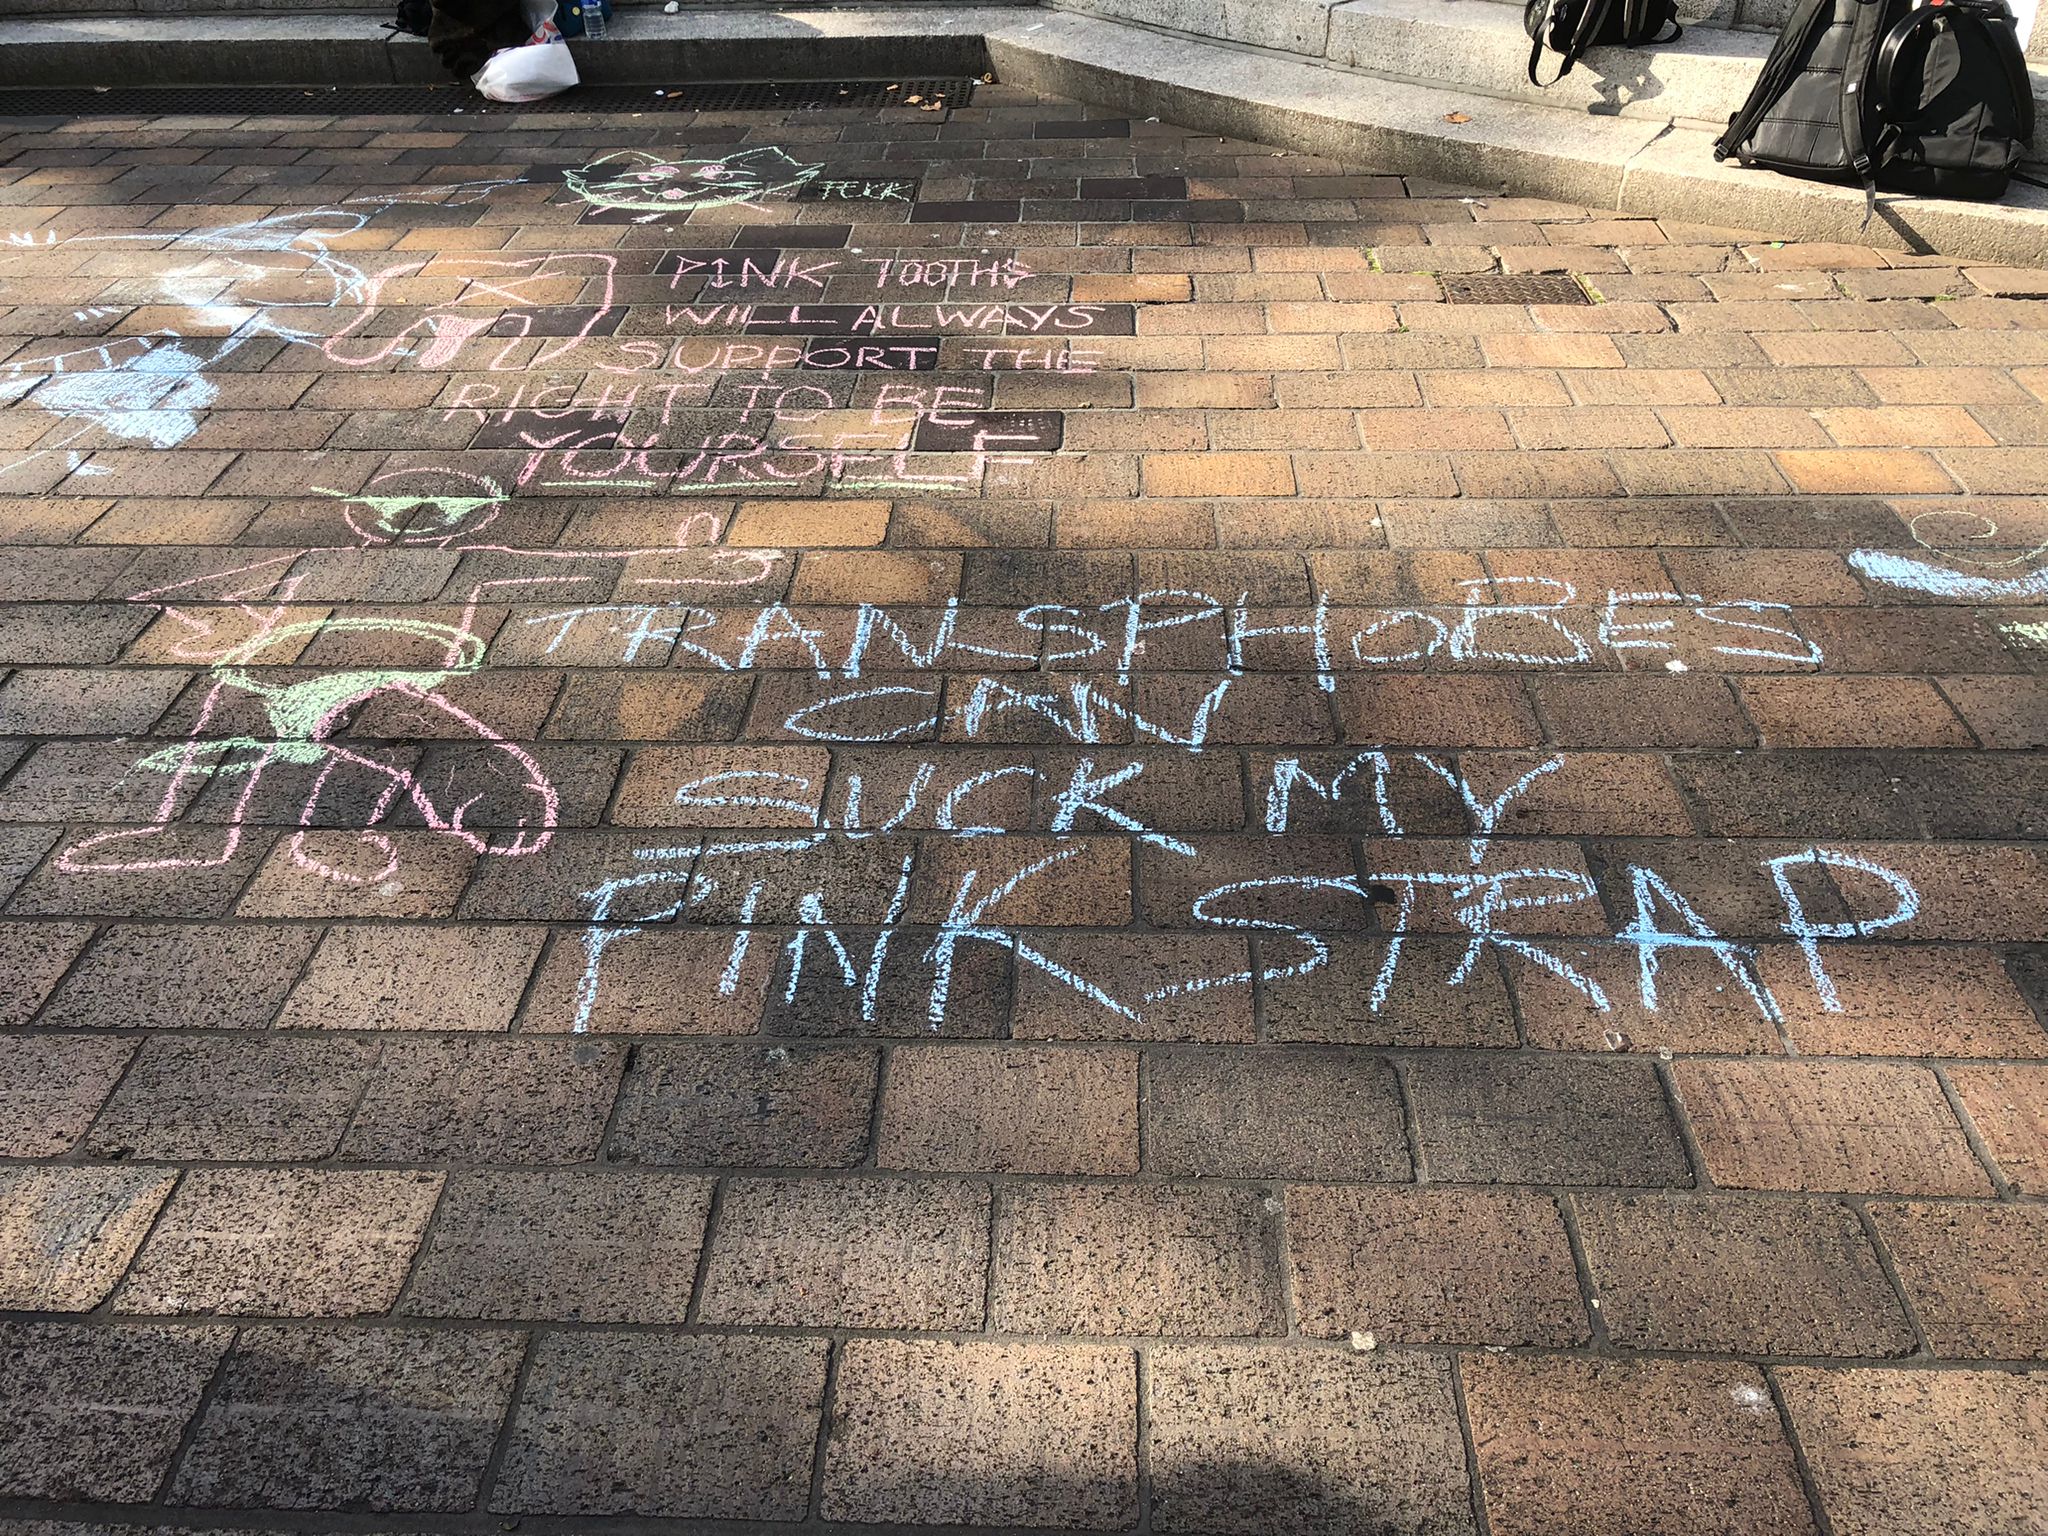 PINK TOOTHS
WILL ALWAYS
SUPPORT THE
RIGHT TO BE
YOURSELF
TRANSPHOBES
CAN
SUCK MY
PINK STRAP